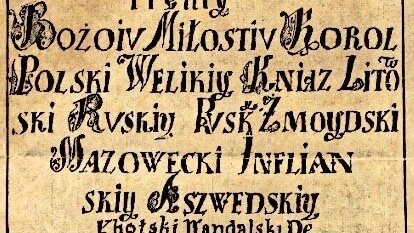 BOŻOIV MIŁOSTIV KOROL
POLSKI WELIKIY KNIAZ LITO
SKI RVSKIY PVSK ŻMOYDSKI
MAZOWECKI INFLIAN
SKIY A SZWEDSKIY
Khotski Wandalski De